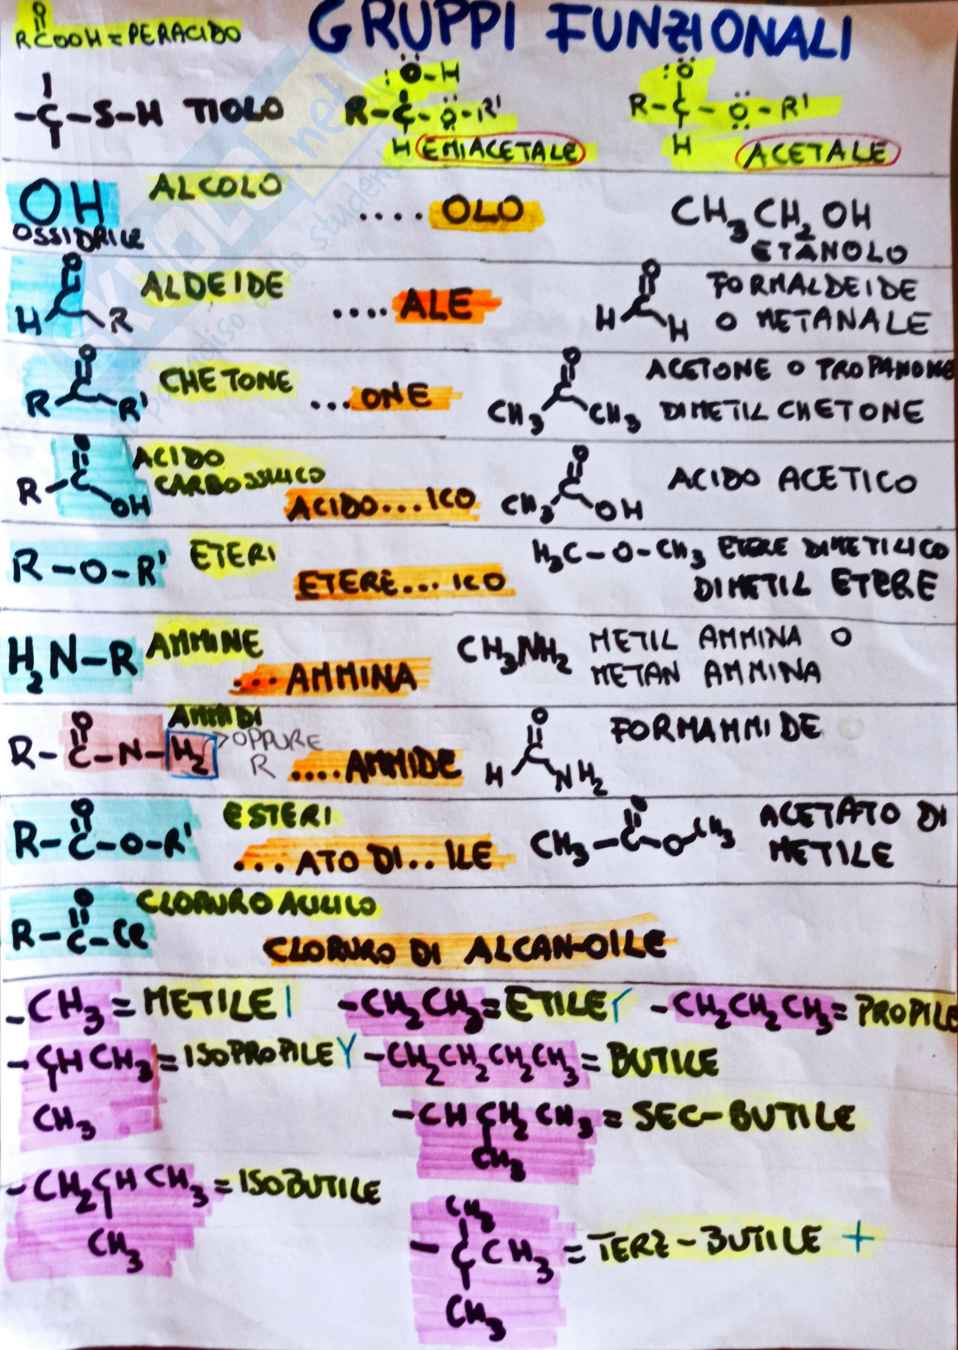 GRUPPI FUNZIONALI
O
RCOOH = PERACIDO
-C-S-H TIOLO
:Ö-H
R-C-Ö-R'
H EMIACETALE
:Ö
R-C-Ö-R'
H ACETALE
OH
OSSIDRILE
ALCOLO
.... OLO
CH3CH2OH
ETANOLO
O
H C R
ALDEIDE
.... ALE
O
H C H
FORMALDEIDE
O METANALE
O
R C R'
CHETONE
... ONE
O
CH3 C CH3
ACETONE O PROPANONE
DIMETIL CHETONE
O
R-C OH
ACIDO
CARBOSSILICO
ACIDO...ICO
O
CH3 C OH
ACIDO ACETICO
R-O-R'
ETERI
ETERE...ICO
H3C-O-CH3 ETERE DIMETILICO
DIMETIL ETERE
H2N-R
AMMINE
... AMMINA
CH3NH2
METIL AMMINA O
METAN AMMINA
O
R-C-N-H2
AMMIDI
> OPPURE
R
.... AMMIDE
O
H NH2
FORMAMMIDE
O
R-C-O-R'
ESTERI
...ATO DI..ILE
O
CH3-C O CH3
ACETATO DI
METILE
O
R-C-Cl
CLORURO ACILICO
CLORURO DI ALCAN-OILE
-CH3 = METILE |
-CH2CH3 = ETILE
-CH2CH2CH3 = PROPILE
-CHCH3 = ISOPROPILE Y
CH3
-CH2CH2CH2CH3 = BUTILE
-CHCH2CH3 = SEC-BUTILE
CH3
-CH2CHCH3 = ISOBUTILE
CH3
CH3
-CCH3 = TERZ-BUTILE +
CH3